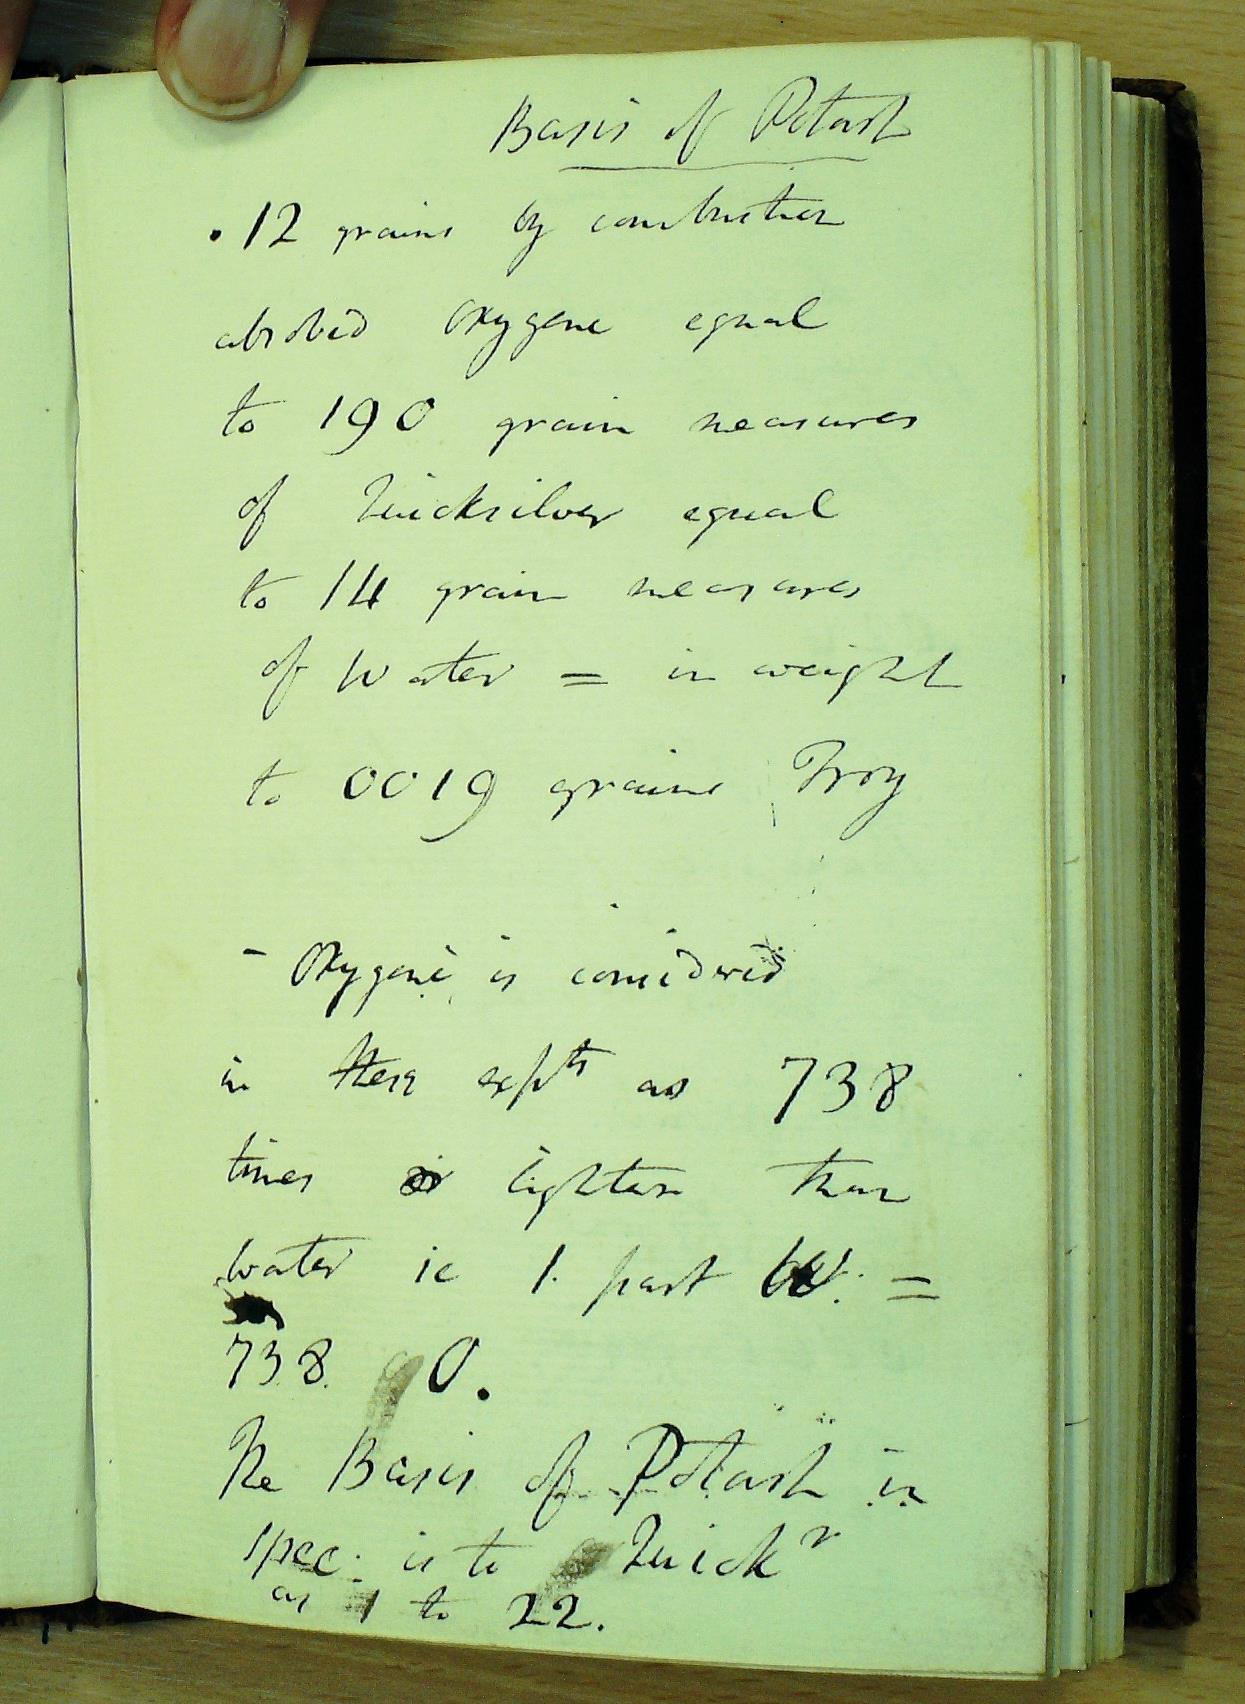 Basis of Potash
.12 grains by combustion
absobed oxygene equal
to 190 grain measures
of Quicksilver equal
to 14 grain measures
of Water = in weight
to 0019 grains Troy
- Oxygene is considered
in these expts as 738
times lighter than
water ie 1. part W. =
738 O.
The Basis of Potash in
spec: is to Quickr
as 1 to 22.